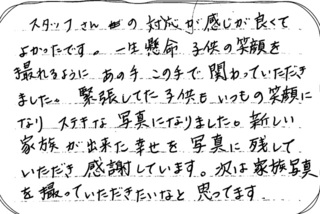 スタッフさんの対応が感じが良くて
よかったです。一生懸命 子供の笑顔を
撮れるように あの手この手で 関わっていただき
ました。緊張してた子供も いつもの笑顔に
なり ステキな 写真になりました。新しい
家族が出来た幸せを 写真に残して
いただき 感謝しています。次は家族写真
を撮っていただきたいなと 思ってます